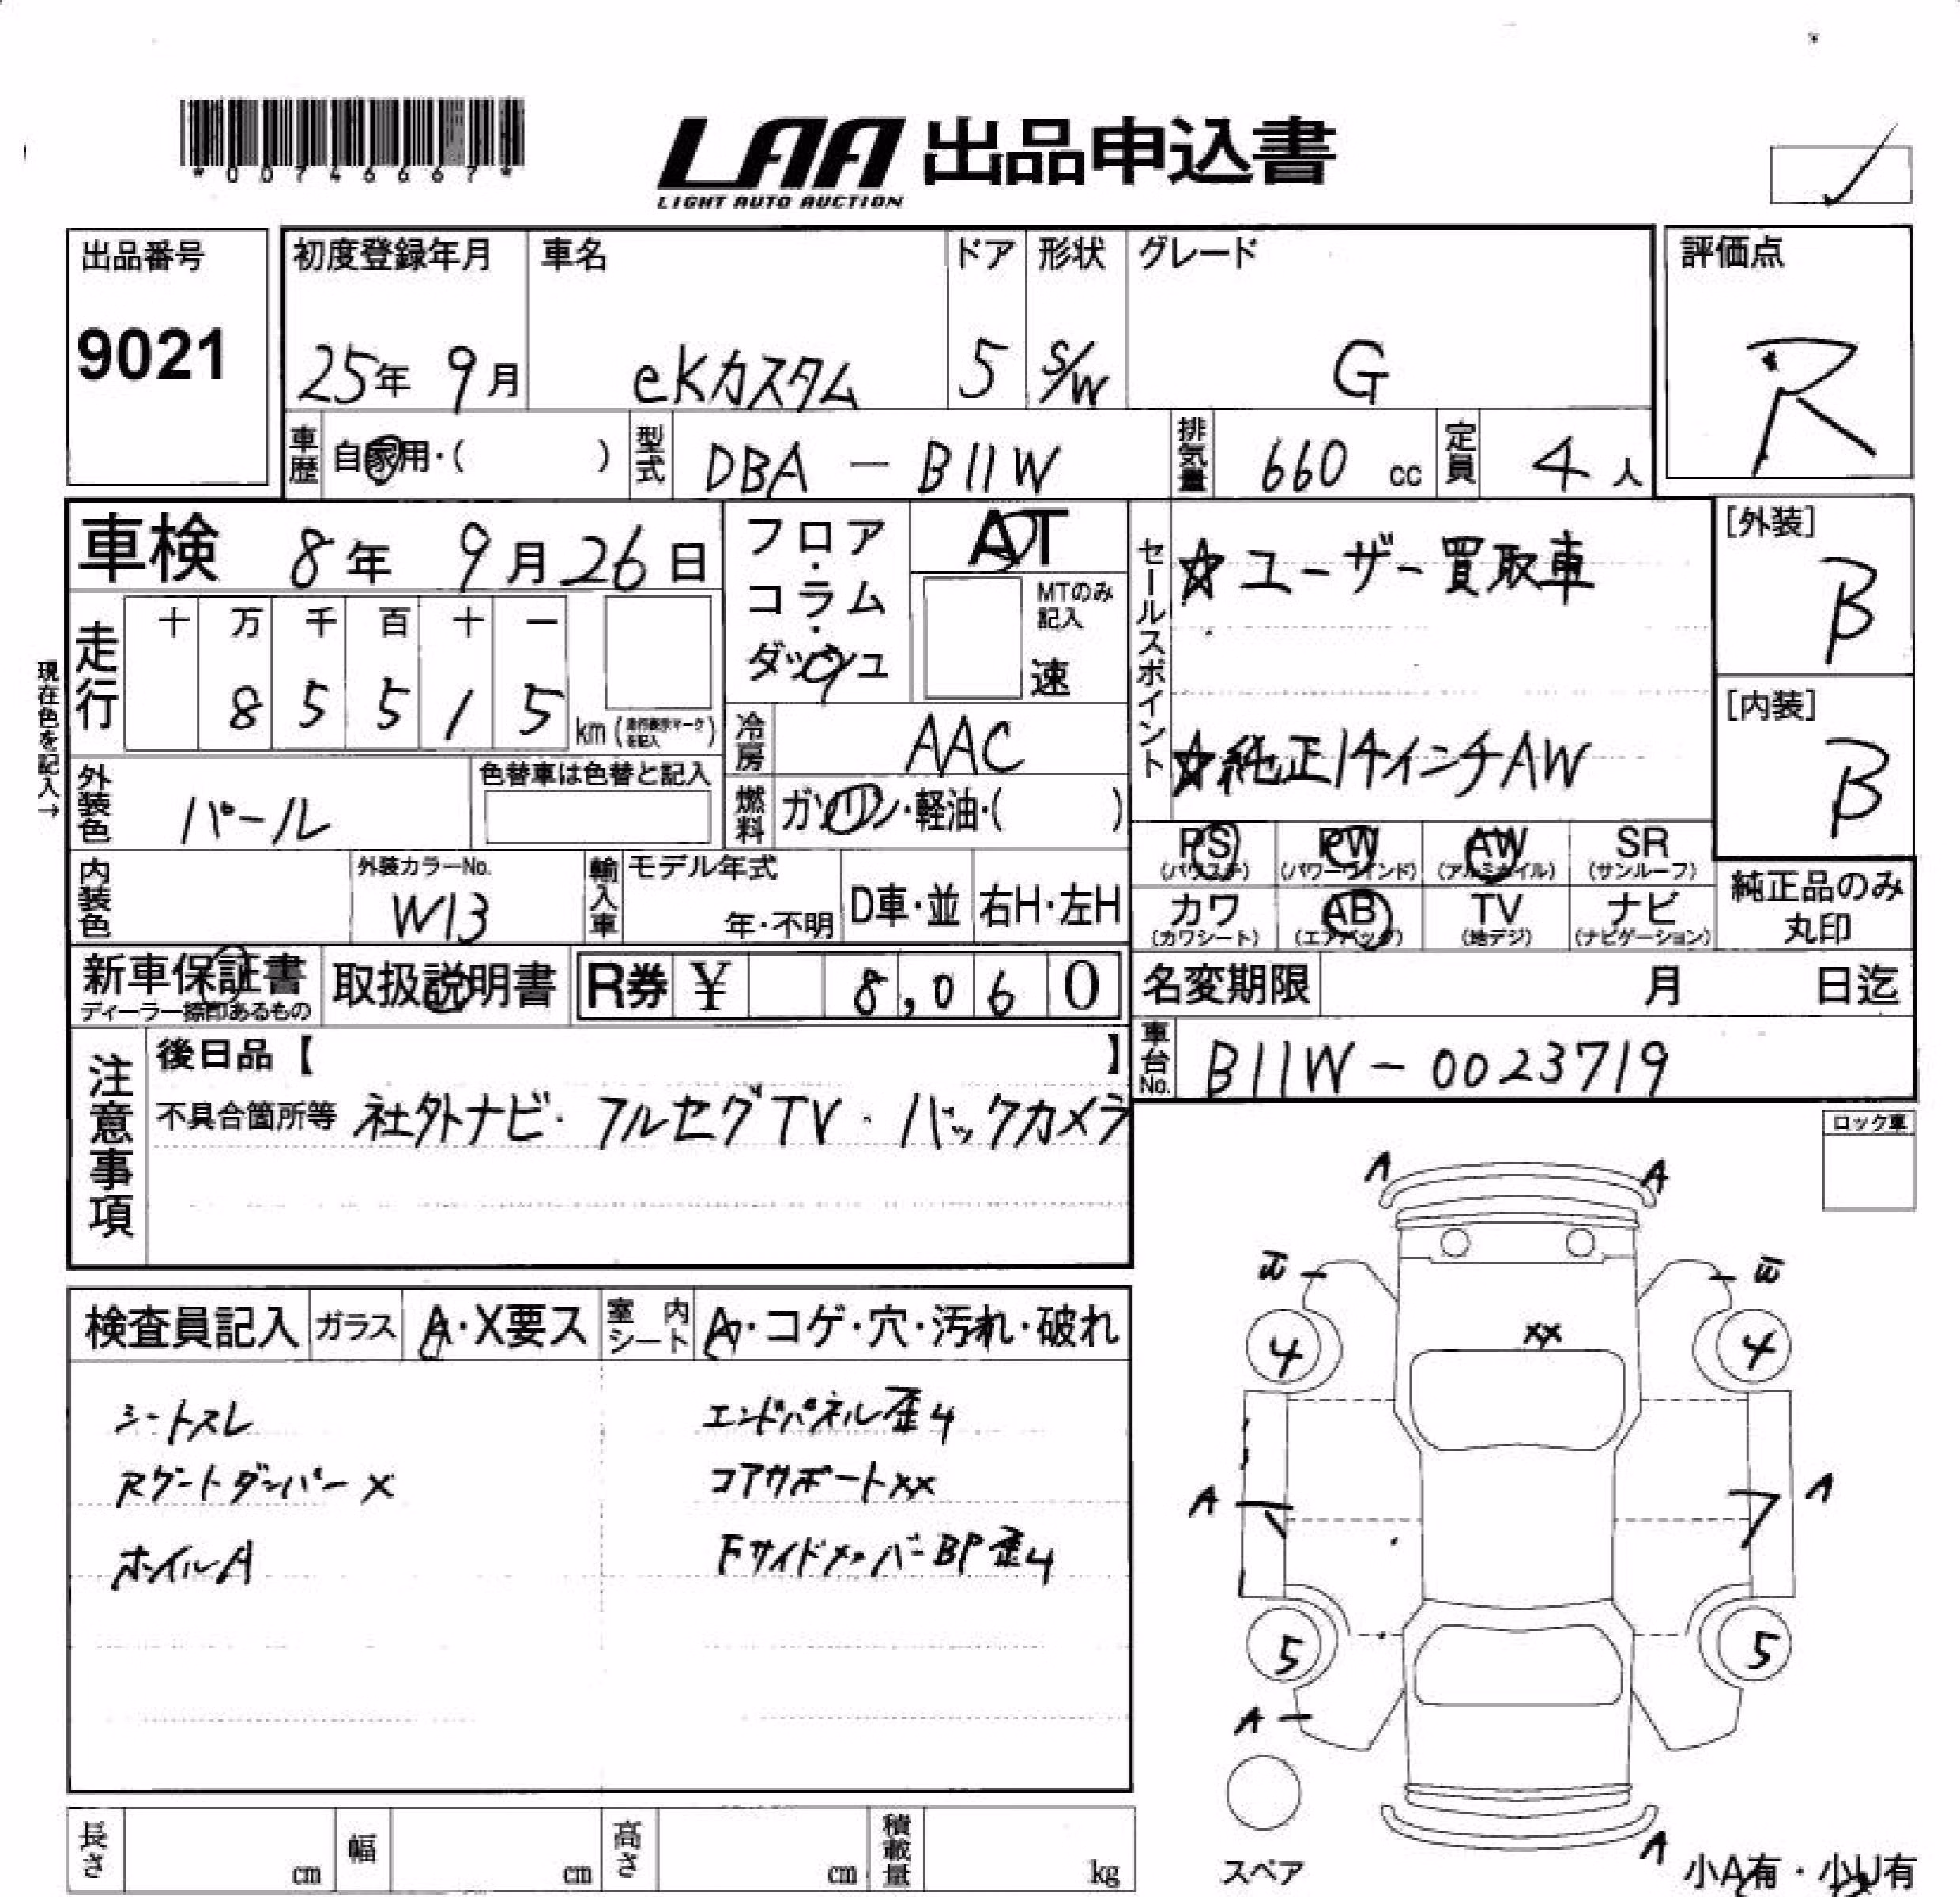 *00746667*
LAA 出品申込書
LIGHT AUTO AUCTION
出品番号
9021
初度登録年月
25年 9月
車名
eKカスタム
ドア
5
形状
S/W
グレード
G
評価点
R
車歴 自家用・( )
型式 DBA - B11W
排気量 660 cc
定員 4 人
車検 8年 9月26日
フロア・コラム・ダッシュ
AT
MTのみ記入
速
セールスポイント
☆ユーザー買取車
☆純正14インチAW
[外装]
B
[内装]
B
現在色を記入→
走行
十 万 千 百 十 一
8 5 5 1 5
km (走行表示マークを記入)
冷房 AAC
燃料 ガソリン・軽油・( )
外装色 パール
色替車は色替と記入
内装色
外装カラーNo.
W13
輸入車
モデル年式
年・不明
D車・並
右H・左H
PS (パワステ)
PW (パワーウインド)
AW (アルミホイル)
SR (サンルーフ)
カワ (カワシート)
AB (エアバッグ)
TV (地デジ)
ナビ (ナビゲーション)
純正品のみ丸印
新車保証書
ディーラー捺印あるもの
取扱説明書
R券 ¥ 8,060
名変期限 月 日迄
車台No. B11W - 0023719
注意事項
後日品【 】
不具合箇所等 社外ナビ・フルセグTV・バックカメラ
ロック車
検査員記入
ガラス A・X要ス
室内シート A・コゲ・穴・汚れ・破れ
シートスレ
Rゲートダンパー×
ホイルA
エンドパネル歪4
コアサポートXX
FサイドメンバーBP歪4
A A
XX
4 4
A A
5 5
A
A
スペア
小A有・小U有
長さ cm
幅 cm
高さ cm
積載量 kg